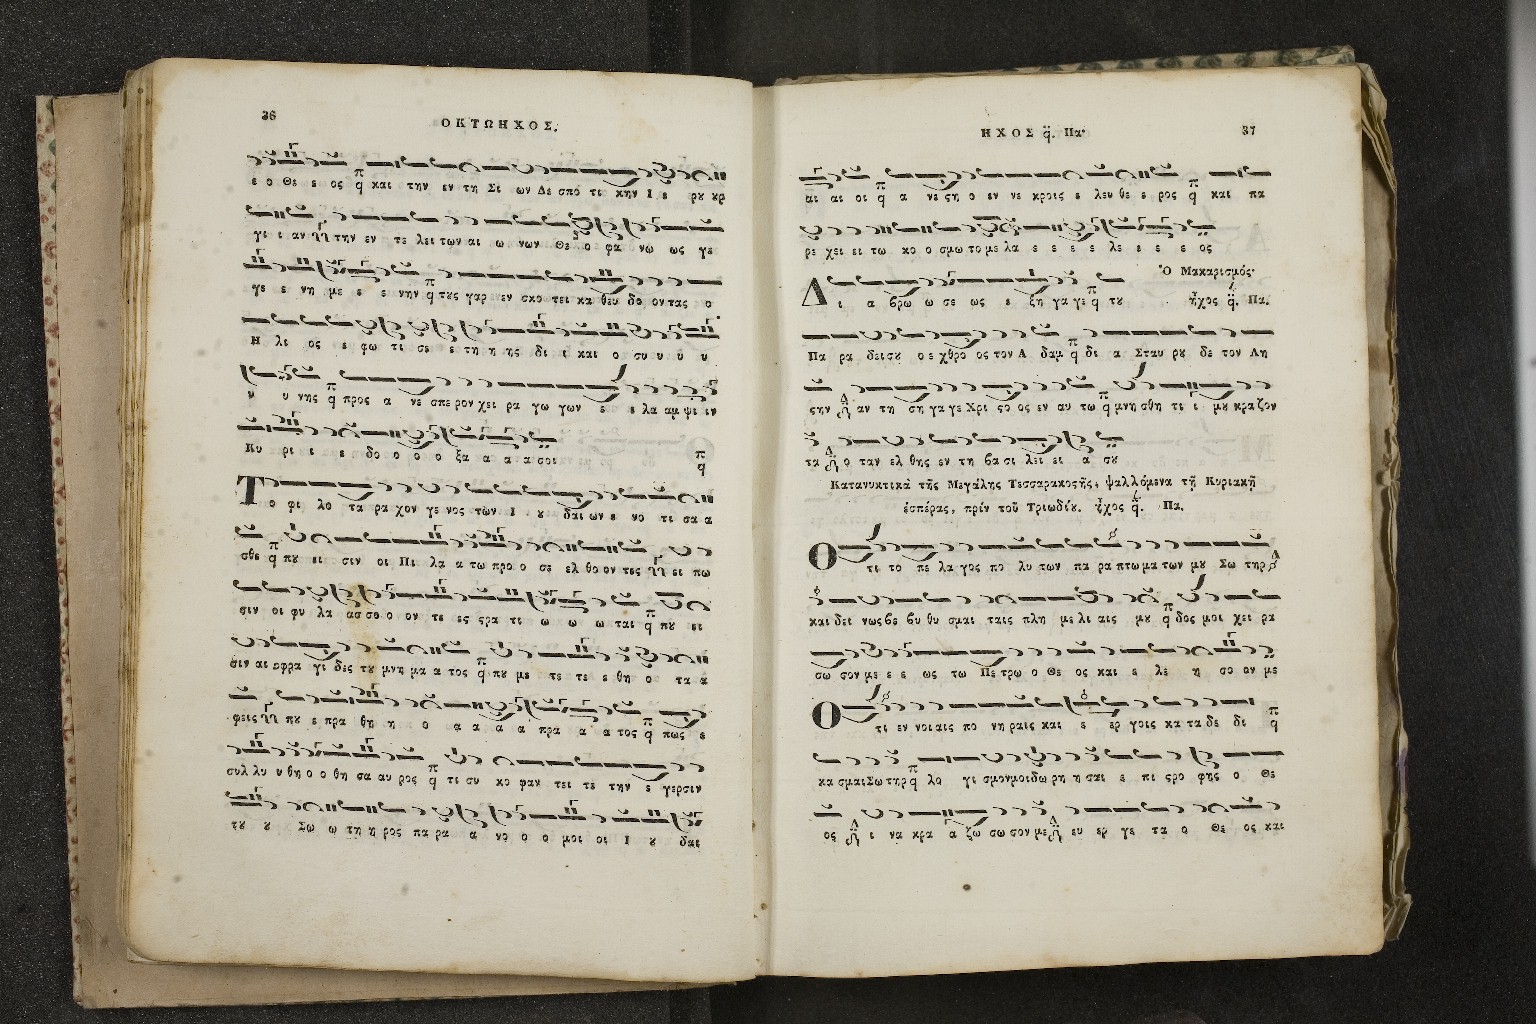 36
ΟΚΤΩΗΧΟΣ.
ε ο Θε ε ος και την εν τη Σι ων Δε σπο τι κην Ι ε ρȣ κρ
γι ι αν την εν τε λει των αι ω νων Θε ο φα νω ως γε
γε ε νη με ε ε νην τȣς γαρ εν σκο τει κα θευ δο ον τας ο
Η λι ος ε φω τι σε ε τη η ης δι ι και ο συ υ ύ υ
υ υ νης προς α νε σπε ρον χει ρα γω γων ε ε λα αμ ψι ιν
Κυ ρι ι ε δο ο ο ο ξα α α α σοι
Το φι λο τα ρα χον γε νος των Ι ȣ δαι ων ε νο τι σα α
σθε πȣ ει σιν οι Πι λα α τω προ ο σε ελ θο ον τες ει πω
σιν οι φυ λα ασ σο ο ον τε ες ϛρα τι ω ω ω ται πȣ ει
σιν αι σφρα γι δες τȣ μνη μα α τος πȣ με τε τε ε θη ο τα α
φεις πȣ ε πρα θη η ο α α α α πρα α α τος πως ε
συλ λυ υ θη ο ο θη σα αυ ρος τι συ κο φαν τει τε την ε γερσιν
τȣ ȣ Σω ω τη η ρος πα ρα α νο ο ο μοι οι Ι ȣ δαι
ΗΧΟΣ q̈. Πα·
37
αι αι οι α νε ϛη ο εν νε κροις ε λευ θε ε ρος και πα
ρε χει ει τω κο ο σμω το με λα ε ε ε ε λε ε ε ε ος
Ὁ Μακαρισμός·
Δι α βρω ω σε ως ε ξη γα γε τȣ ἦχος q̈. Πα.
Πα ρα δεισȣ ο ε χθρο ος τον Α δαμ δι α Σταυ ρȣ δε τον Λη
ϛην αν τη ση γα γε Χρι ϛο ος εν αυ τω μνη σθη τι ι μȣ κρα ζον
τα ο ταν ελ θης εν τη βα σι λει ει α σȣ
Κατανυκτικὰ τῆς Μεγάλης Τεσσαρακοϛῆς, ψαλλόμενα τῇ Κυριακῇ
ἑσπέρας, πρὶν τοῦ Τριωδίȣ. ἦχος q̈. Πα.
Ο τι το πε λα γος πο λυ των πα ρα πτω μα των μȣ Σω τηρ
και δει νως βε βυ θυ σμαι ταις πλη με λι αις μȣ δος μοι χει ρα
σω σον με ε ε ως τω Πε τρω ο Θε ος και ε λε η σο ον με
Ο τι εν νοι αις πο νη ραις και ε ερ γοις κα τα δε δι
κα σμαι Σω τηρ λο γι σμον μοι δω ρη η σαι ε πι ϛρο φης ο Θε
ος ι να κρα α ζω σω σον με ευ ερ γε τα ο Θε ος και